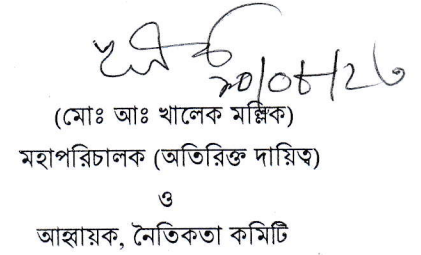 (মোঃ আঃ খালেক মল্লিক)
মহাপরিচালক (অতিরিক্ত দায়িত্ব)
ও
আহ্বায়ক, নৈতিকতা কমিটি